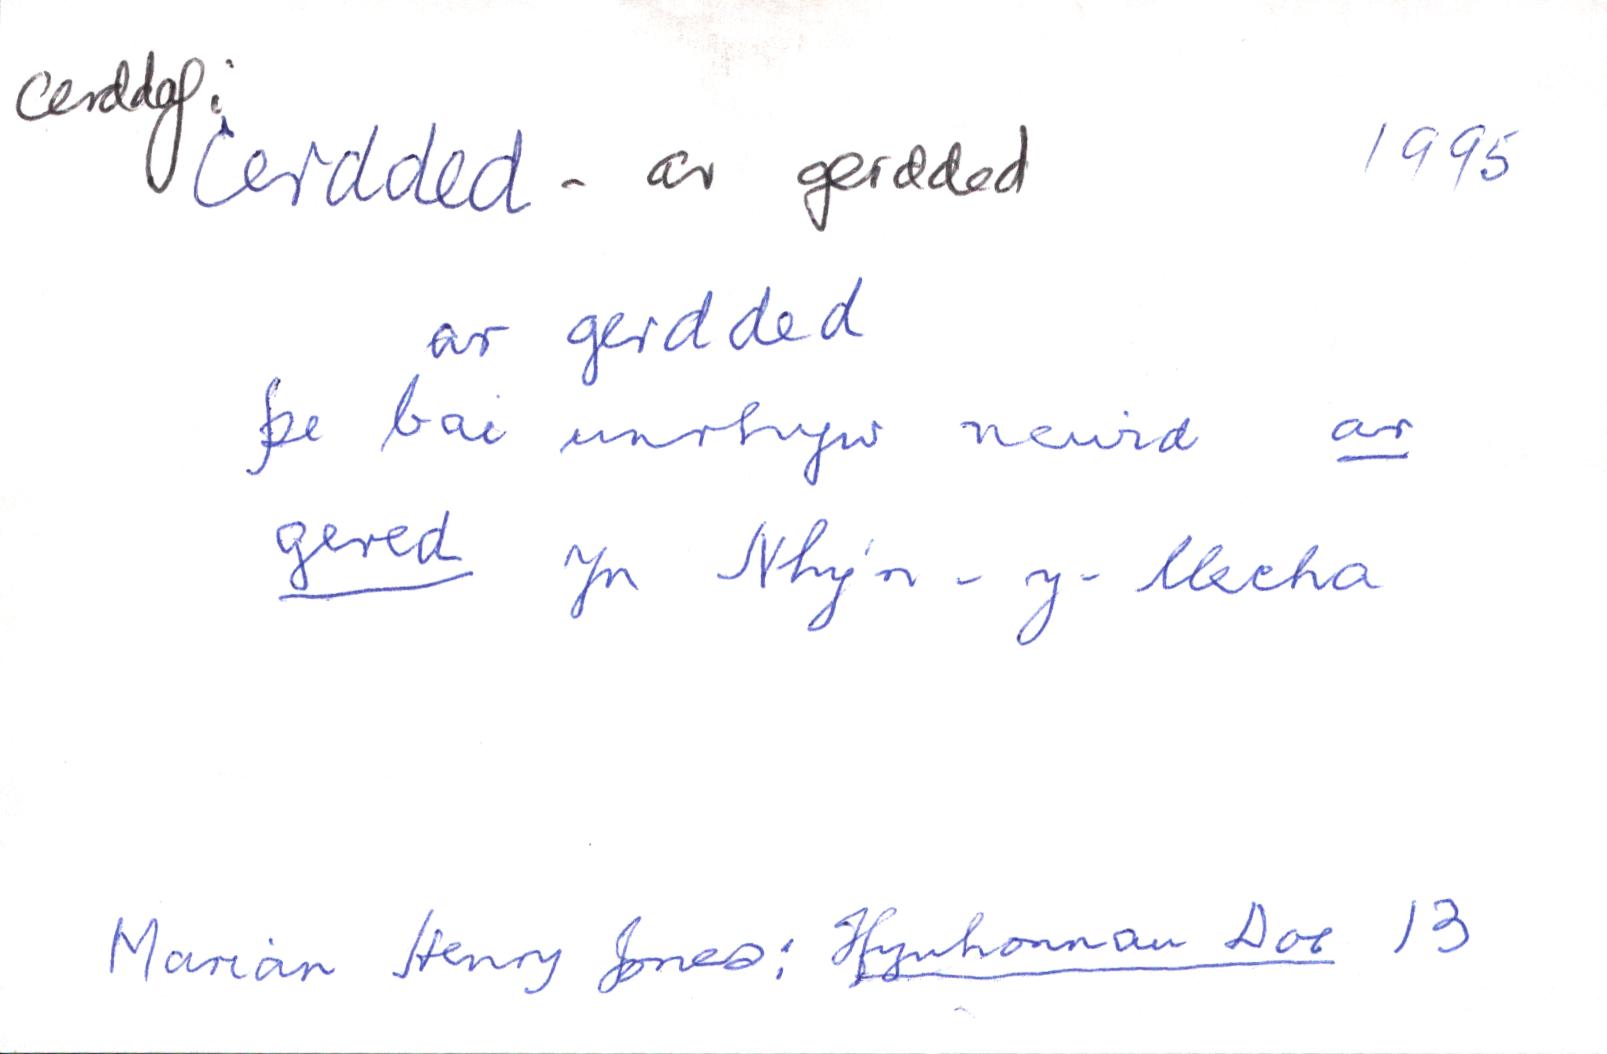 cerddaf:
Cerdded - ar gerdded 1995
ar gerdded
pe bai unrhyw newid ar
gered yn Nhŷ'n-y-llecha
Marian Henry Jones: Hynhonnau Doe 13